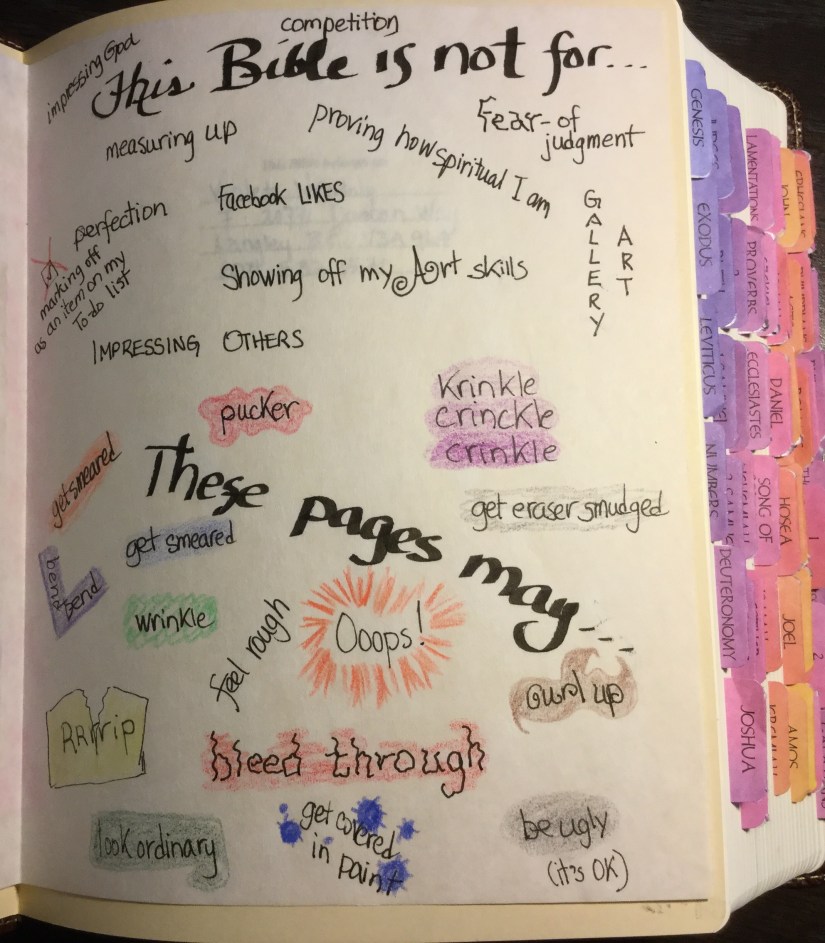 competition
impressing God
This Bible is not for...
measuring up
proving how spiritual I am
Fear of
judgment
perfection
Facebook LIKES
GALLERY
ART
marking off
as an item on my
To do list
Showing off my Art skills
IMPRESSING OTHERS
pucker
Krinkle
Crinckle
crinkle
get smeared
These pages may...
get eraser smudged
get smeared
bend
bend
wrinkle
feel rough
Ooops!
curl up
RRrrip
bleed through
look ordinary
get covered
in paint
be ugly
(it's OK)
GENESIS
EXODUS
LEVITICUS
NUMBERS
DEUTERONOMY
JOSHUA
LAMENTATIONS
PROVERBS
ECCLESIASTES
SONG OF
DANIEL
HOSEA
JOEL
AMOS